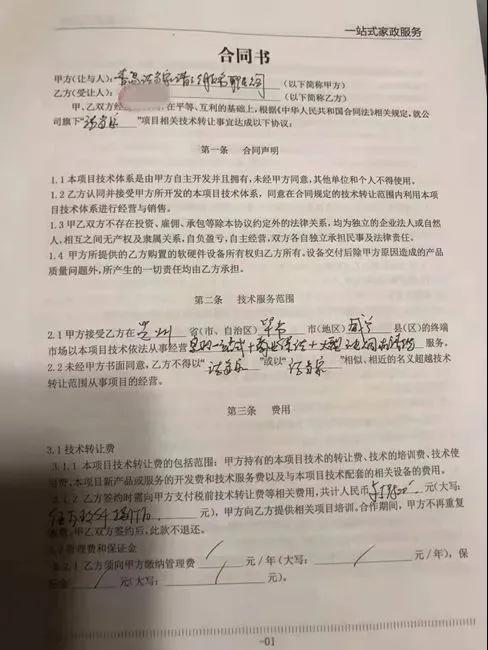 一站式家政服务
合同书
甲方(让与人): (以下简称甲方)
乙方(受让人): (以下简称乙方)
甲、乙双方经 在平等、互利的基础上,根据《中华人民共和国合同法》相关规定,就公
司旗下“洁家乐”项目相关技术转让事宜达成以下协议:
第一条 合同声明
1.1 本项目技术体系是由甲方自主开发并且拥有,未经甲方同意,其他单位和个人不得使用。
1.2 乙方认同并接受甲方所开发的本项目技术体系,同意在合同规定的技术转让范围内利用本项
目技术体系进行经营与销售。
1.3 甲乙双方不存在投资、雇佣、承包等除本协议约定外的法律关系,均为独立的企业法人或自然
人,相互之间无产权及隶属关系,自负盈亏,自主经营,双方各自独立承担民事及法律责任。
1.4 甲方所提供的乙方购置的软硬件设备所有权归乙方所有。设备交付后除甲方原因造成的产品
质量问题外,所产生的一切责任均由乙方承担。
第二条 技术服务范围
2.1 甲方接受乙方在 贵州 省(市、自治区) 毕节 市(地区) 威宁 县(区)的终端
市场以本项目技术依法从事经营 服务。
2.2 未经甲方书面同意,乙方不得以“ ”或以“ ”相似、相近的名义超越技术
转让范围从事项目的经营。
第三条 费用
3.1 技术转让费
3.1.1 本项目技术转让费的包括范围:甲方持有的本项目技术的转让费、技术的培训费、技术使
用费、本项目新产品或服务的开发费和技术服务费以及与本项目技术配套的相关设备的费用。
3.1.2 乙方签约时需向甲方支付税前技术转让费等相关费用,共计人民币 元(大写:
元),甲方向乙方提供相关项目培训。合作期间,甲方不再重复
收费。甲乙双方签约后,此款不退还。
3.2 管理费和保证金
3.2.1 乙方须向甲方缴纳管理费 / 元/年(大写: / 元/年),保
证金 / 元(大写: / 元)。
-01